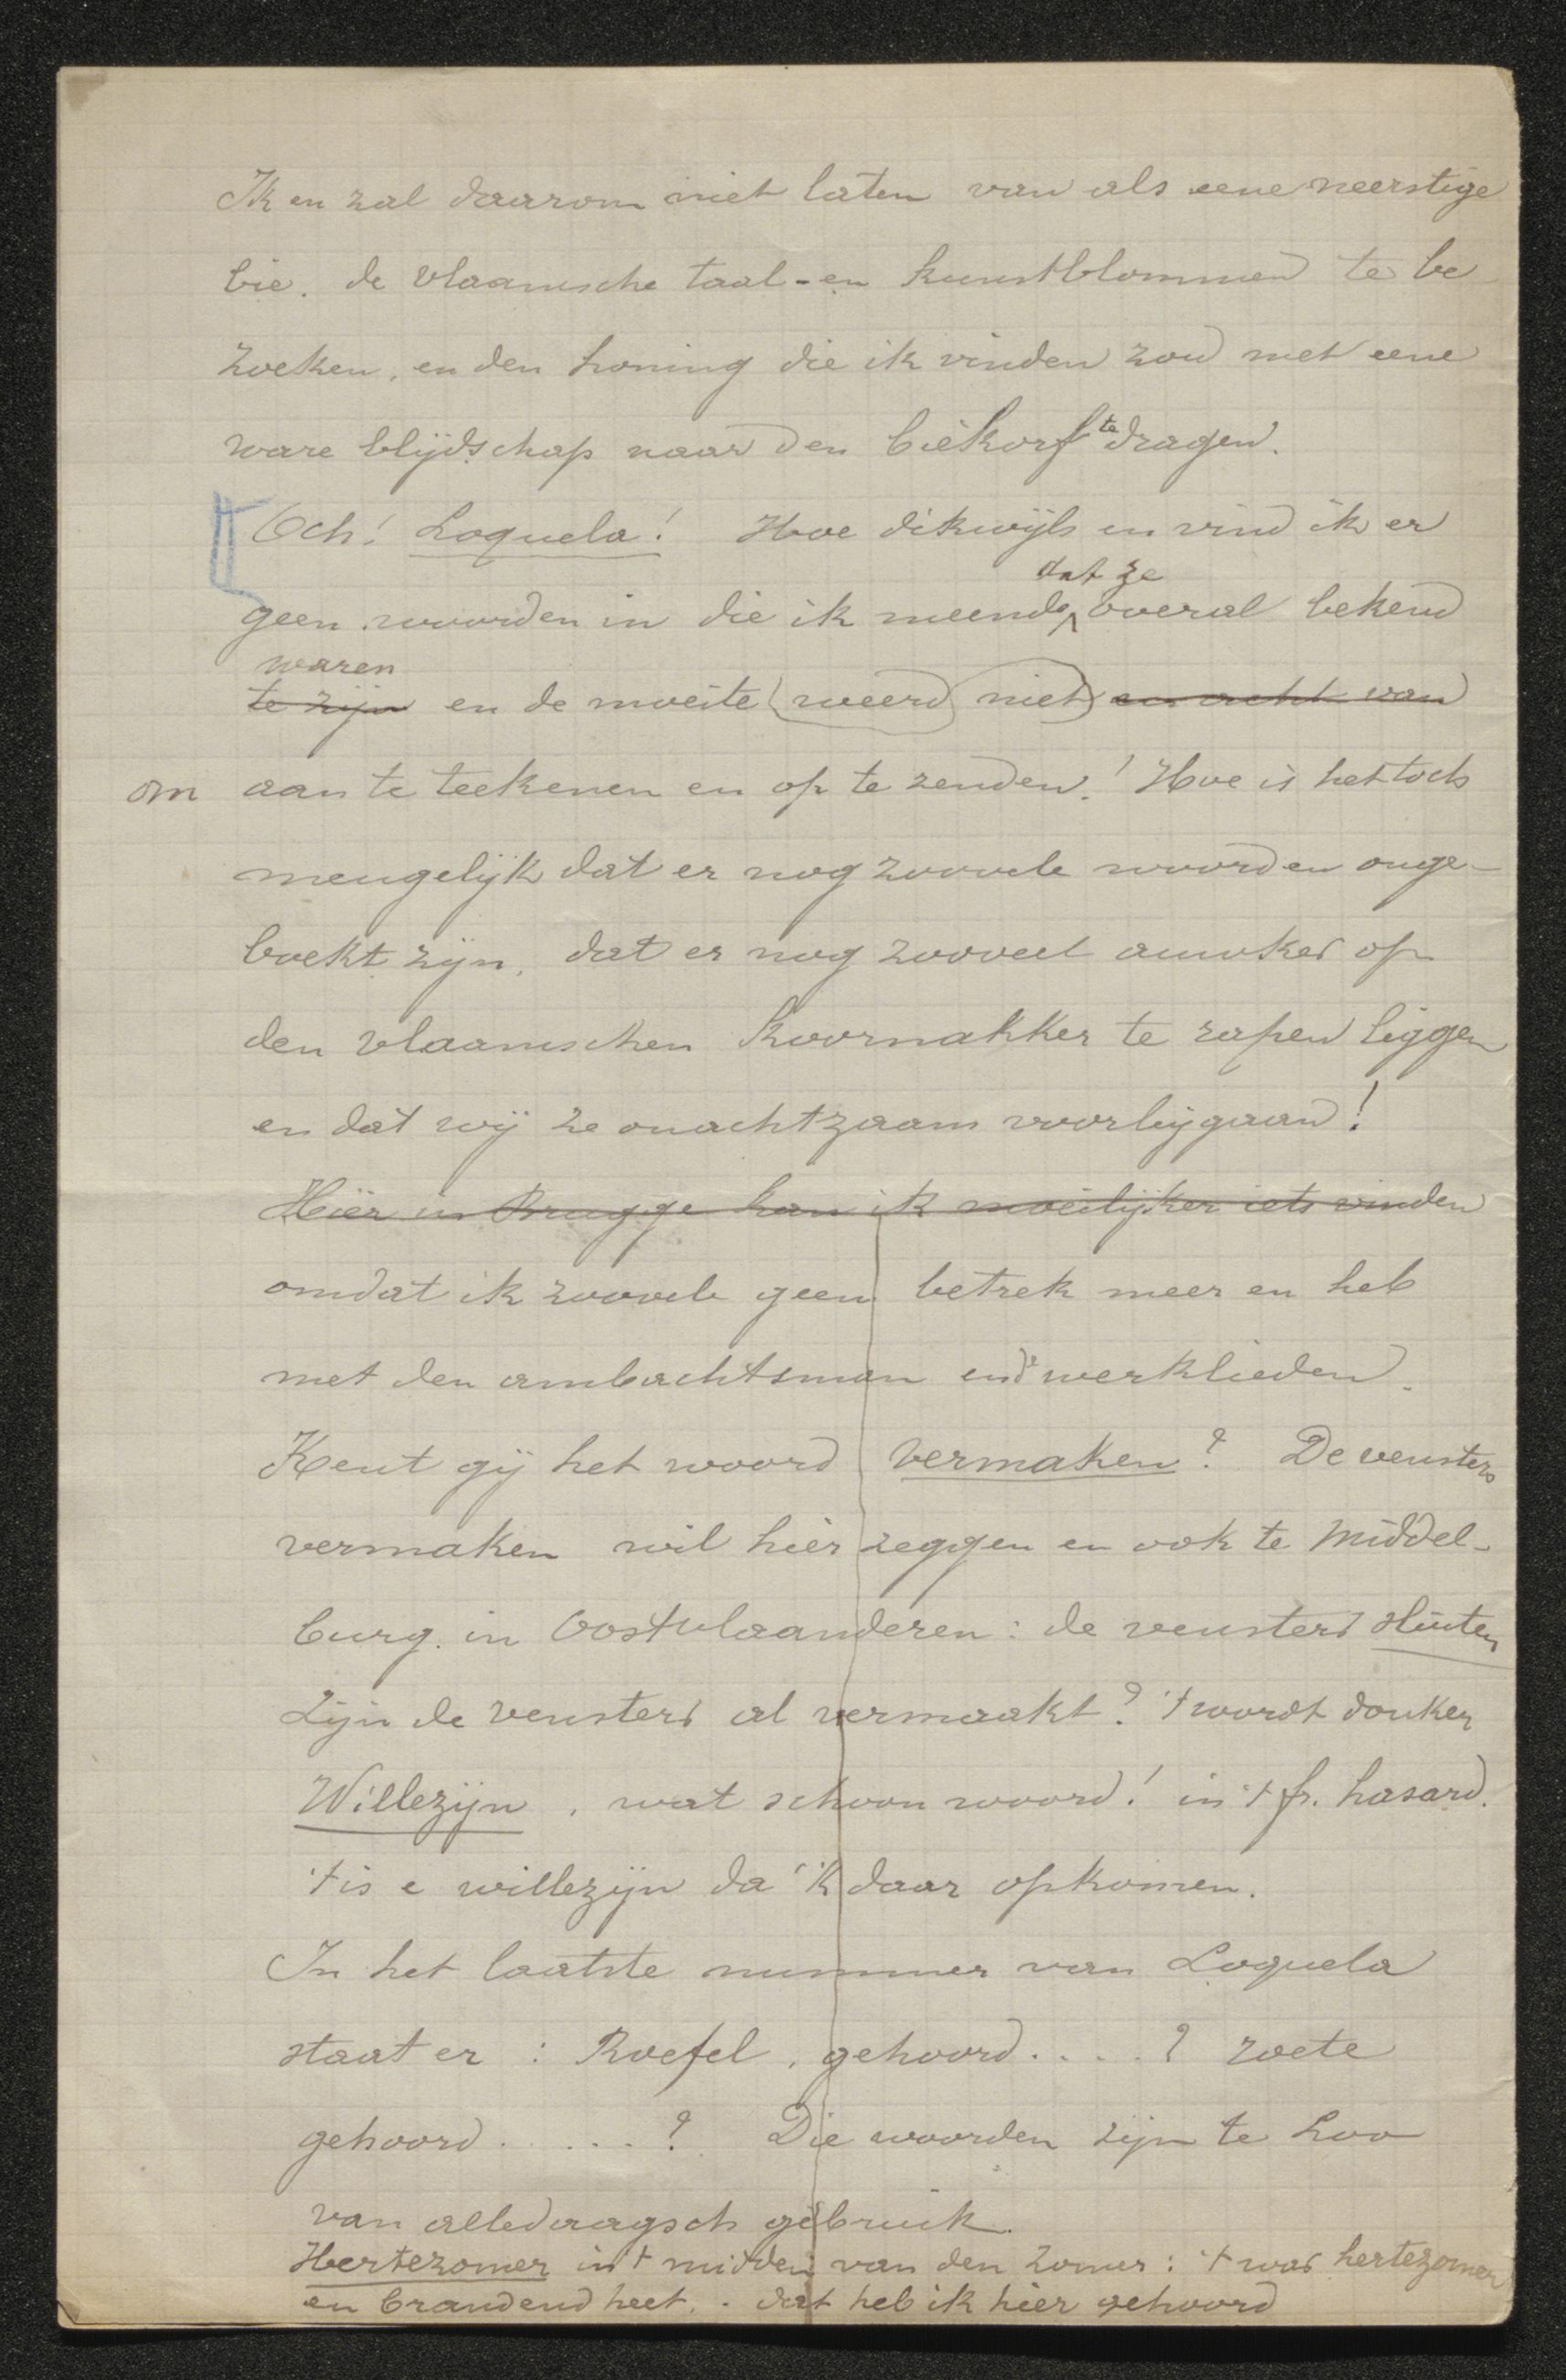 Ik en zal daarom niet laten van als eene neerstige
bie. de vlaamsche taal-en kunstblommen te be
zoeken, en den honing die ik vinden zou met eene
ware blijdschap naar den biekorf te dragen.
Och! Loquela! Hoe dikwijls en vind ik er
dat ze
geen woorden in die ik meende overal bekend
waren
te zijn en de moeite weerd niet en acht van
om aan te teekenen en op te zenden! Hoe is het toch
meugelijk dat er nog zoovele woorden onge-
boekt zijn, dat er nog zooveel auwker op
den vlaamschen koornakker te rapen liggen
en dat wij ze onachtzaam voorbijgaan!
Hier in Brugge kan ik moeilijker iets vinden
omdat ik zoovele geen betrek meer en heb
met den ambachtsman end' werklieden.
Kent gij het woord vermaken? De vensters
vermaken wil hier zeggen en ook te Middel-
burg. in Oostvlaanderen: de vensters sluiten
Zijn de vensters al vermaakt? 't wordt donker
Willezijn, wat schoon woord! in 't fr. hasard.
't is e willezijn da 'k daar opkomen.
In het laatste nummer van Loquela
staat er: Roefel, gehoord....? zoete
gehoord......? Die woorden zijn te Loo
van alledaagsch gebruik.
Hertezomer in 't midden van den zomer: 't was hertezomer
en brandend heet. . dat heb ik hier gehoord